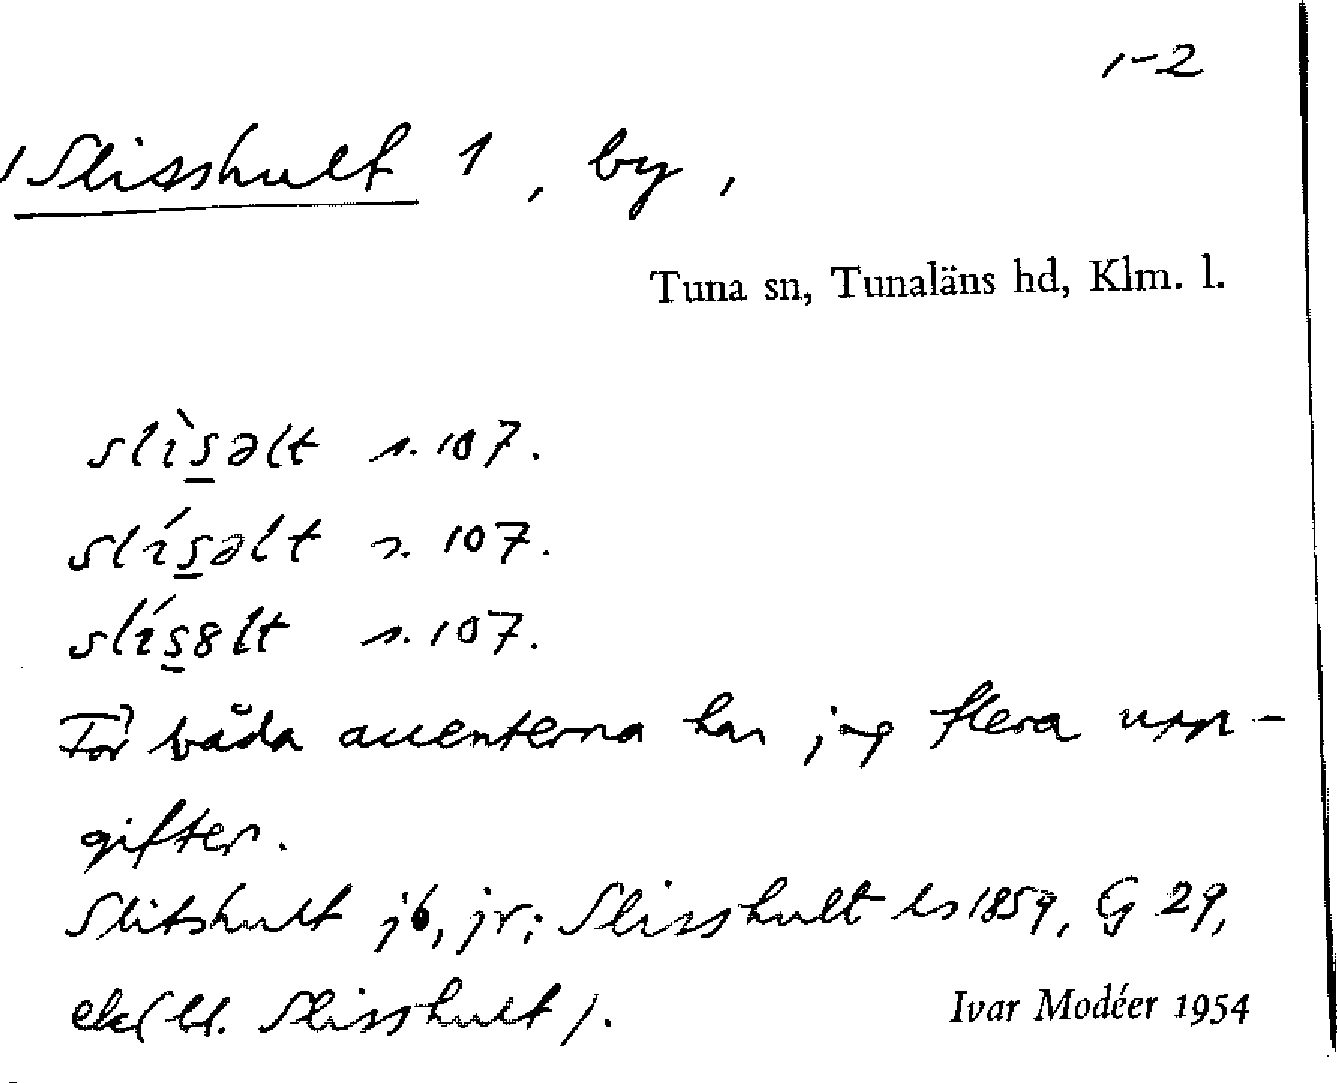 1-2
Slisshult 1, by,
Tuna sn, Tunaläns hd, Klm. l.
slìs̱əlt s. 107.
slís̱əlt s. 107.
slís̱8lt s. 107.
För båda accenterna har jag flera upp-
gifter.
Slitshult jb, jr; Slisshult ls 1859, G 29,
ek(bl. Slisshult).
Ivar Modéer 1954